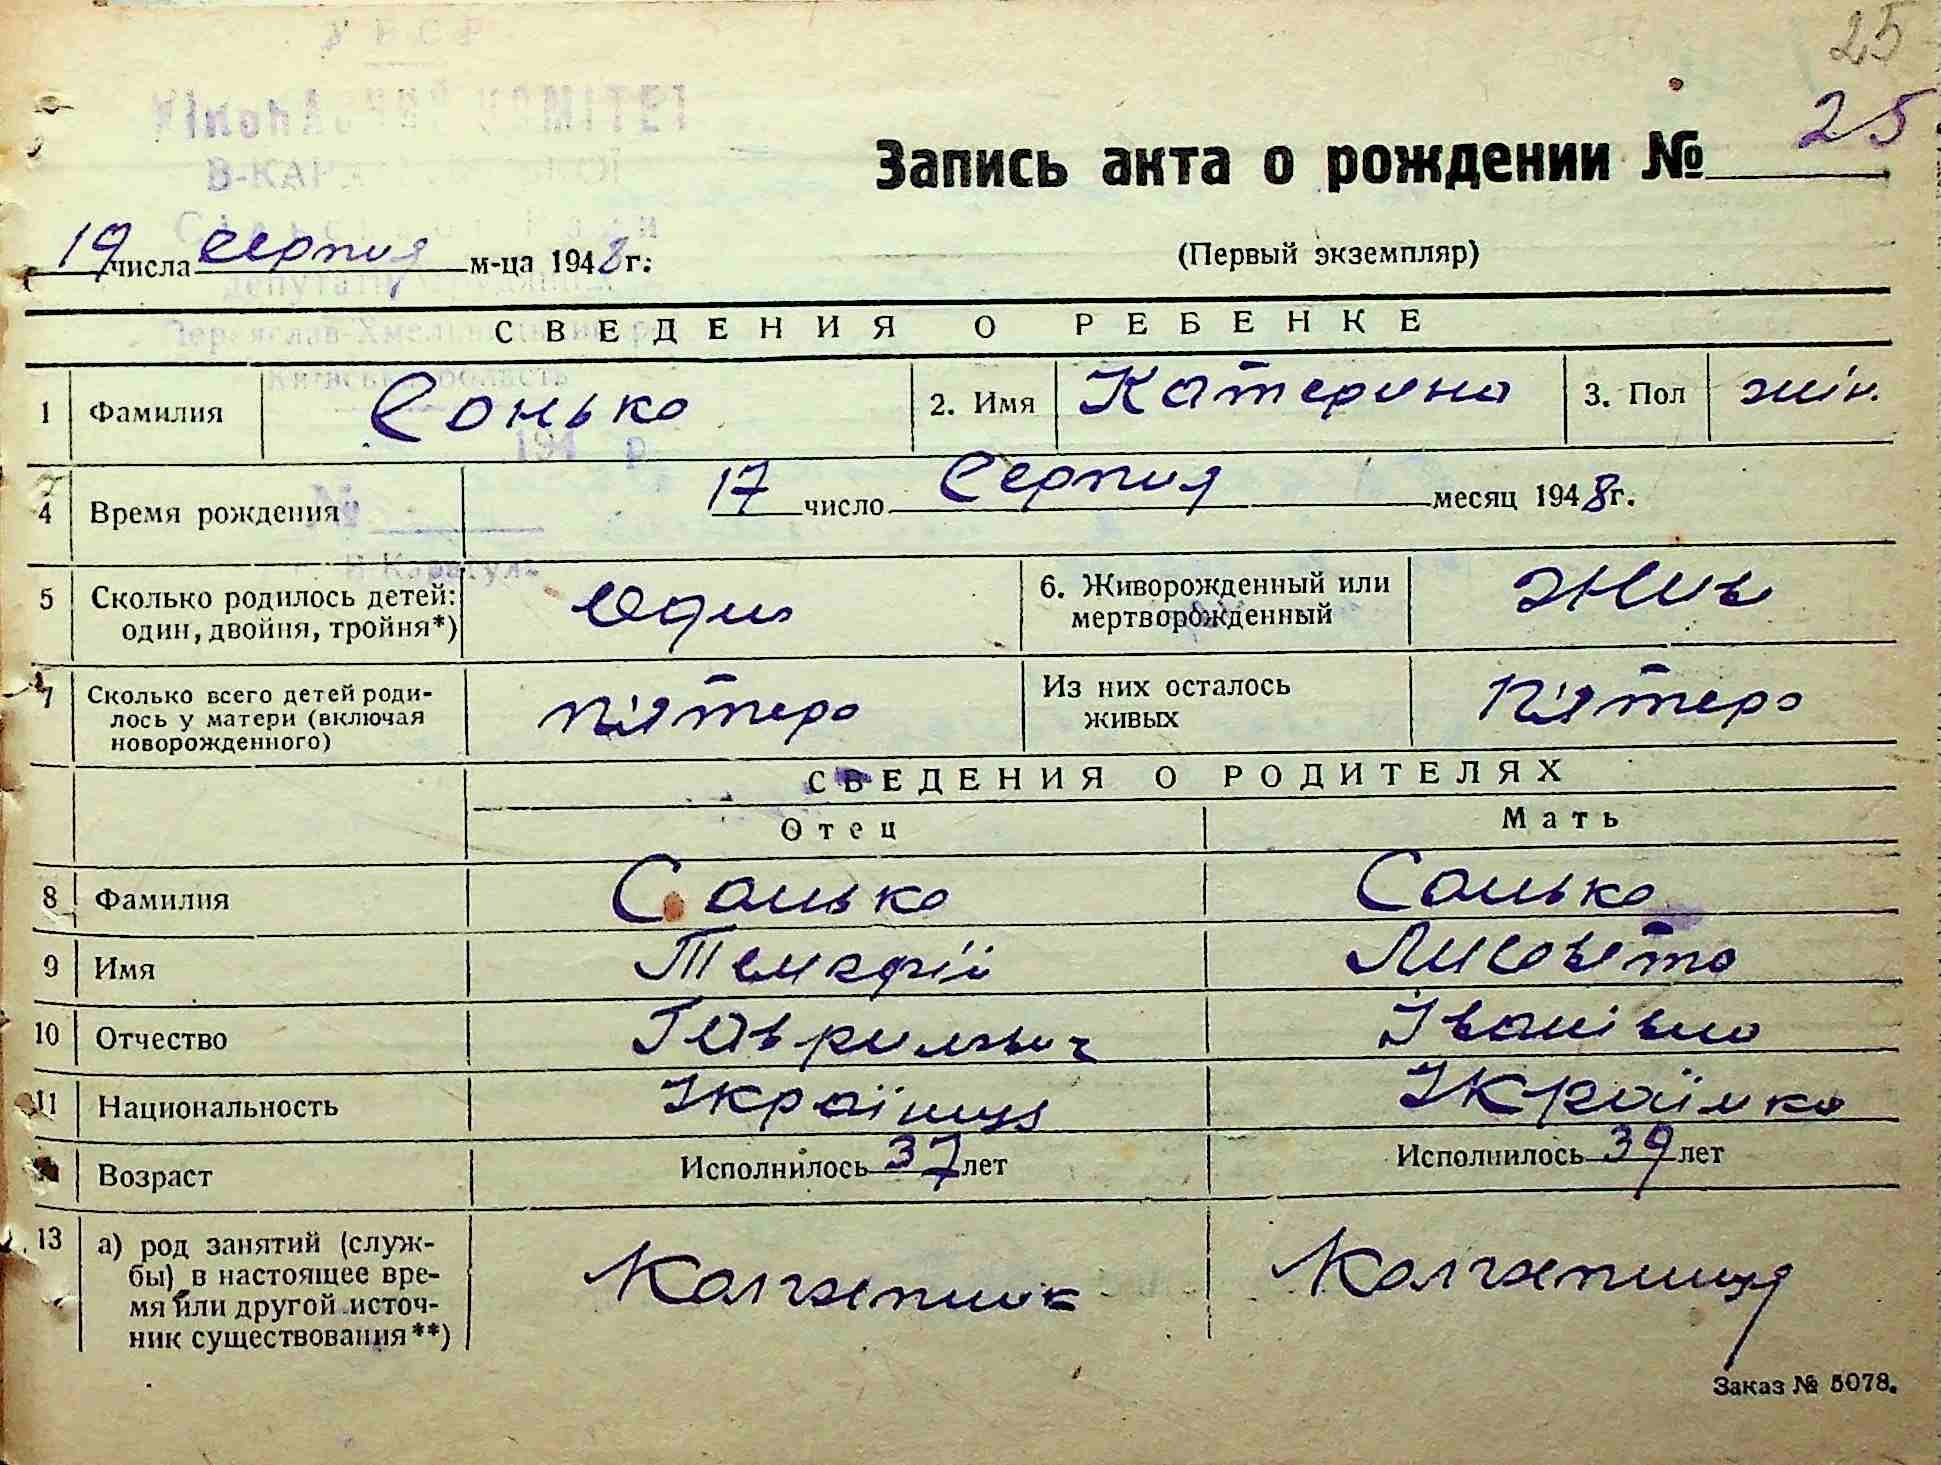 25
УРСР
ВИКОНАВЧИЙ КОМІТЕТ
25
Запись акта о рождении №
(Первый экземпляр)
19 числа серпня м-ца 1948 г.
Переяслав-Хмельницький р-
Київська область
194 р.
№
СВЕДЕНИЯ О РЕБЕНКЕ
1 Фамилия Сонько 2. Имя Катерина 3. Пол жін.
4 Время рождения 17 число серпня месяц 1948 г.
5 Сколько родилось детей: один, двойня, тройня*) Один 6. Живорожденный или мертворожденный жив
7 Сколько всего детей роди-
лось у матери (включая
новорожденного) п'ятеро Из них осталось живых п'ятеро
СВЕДЕНИЯ О РОДИТЕЛЯХ
Отец Мать
8 Фамилия Сонько Сонько
9 Имя Тимофій Лисавета
10 Отчество Гаврилович Іванівна
11 Национальность Українця Українка
Возраст Исполнилось 37 лет Исполнилось 39 лет
13 а) род занятий (служ-
бы) в настоящее вре-
мя или другой источ-
ник существования**) Колгоспник Колгоспниця
Заказ № 5078.